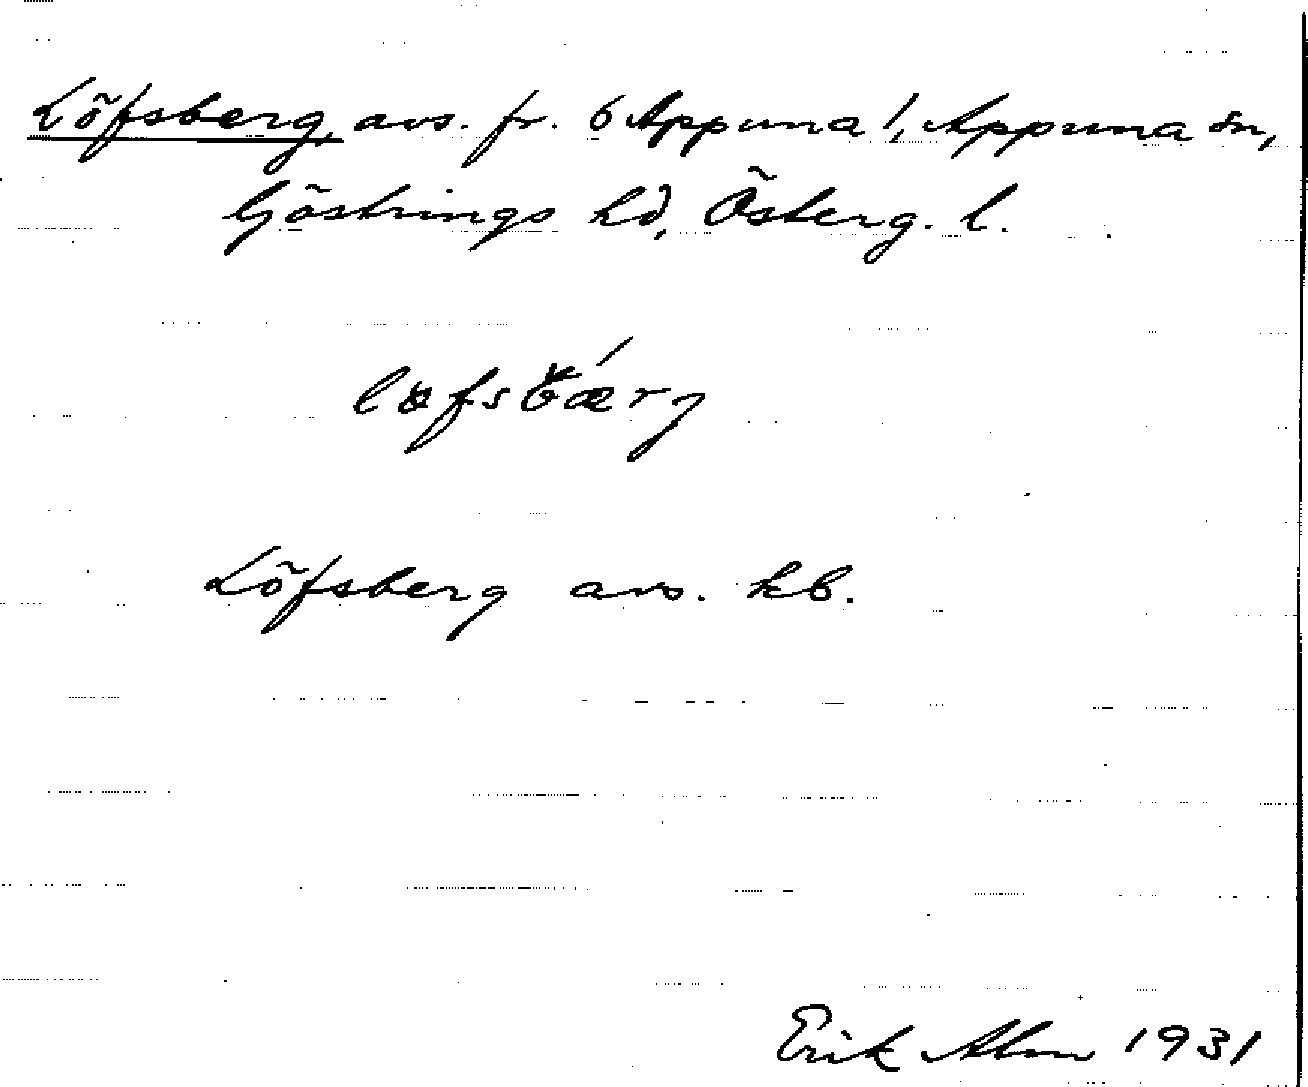 Löfsberg, avs. fr. 6 Appuna 1, Appuna sn,
Göstrings hd, Österg. l.
Löfsberg avs. kb.
Erik Alm 1931